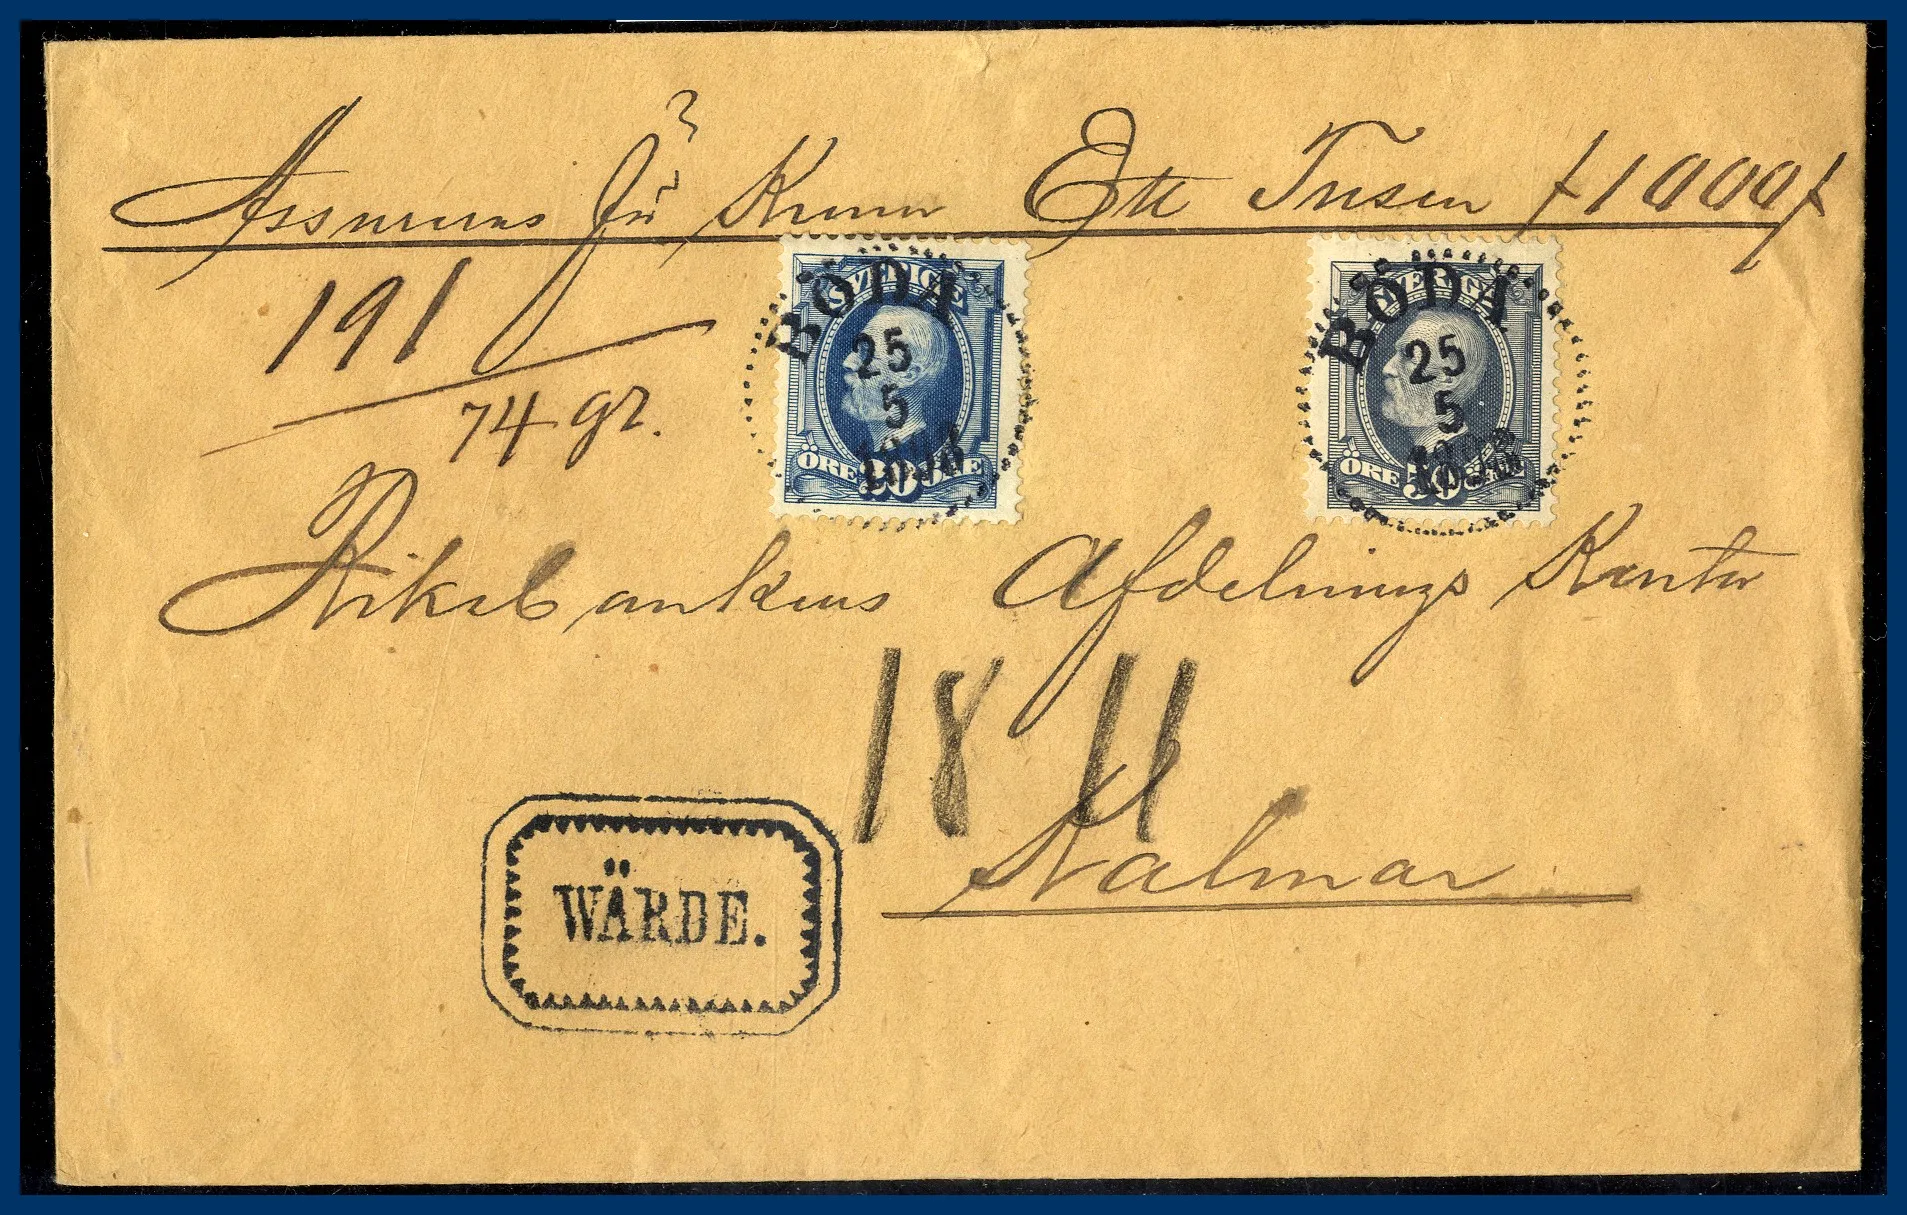 Assureras för Kronor Ett Tusen /1000/
191
74 gr.
SVERIGE
ÖRE 20 ÖRE
BÖDA
25
5
SVERIGE
ÖRE 50 ÖRE
BÖDA
25
5
Riksbankens Afdelnings Kontor
18 11
Kalmar
WÄRDE.